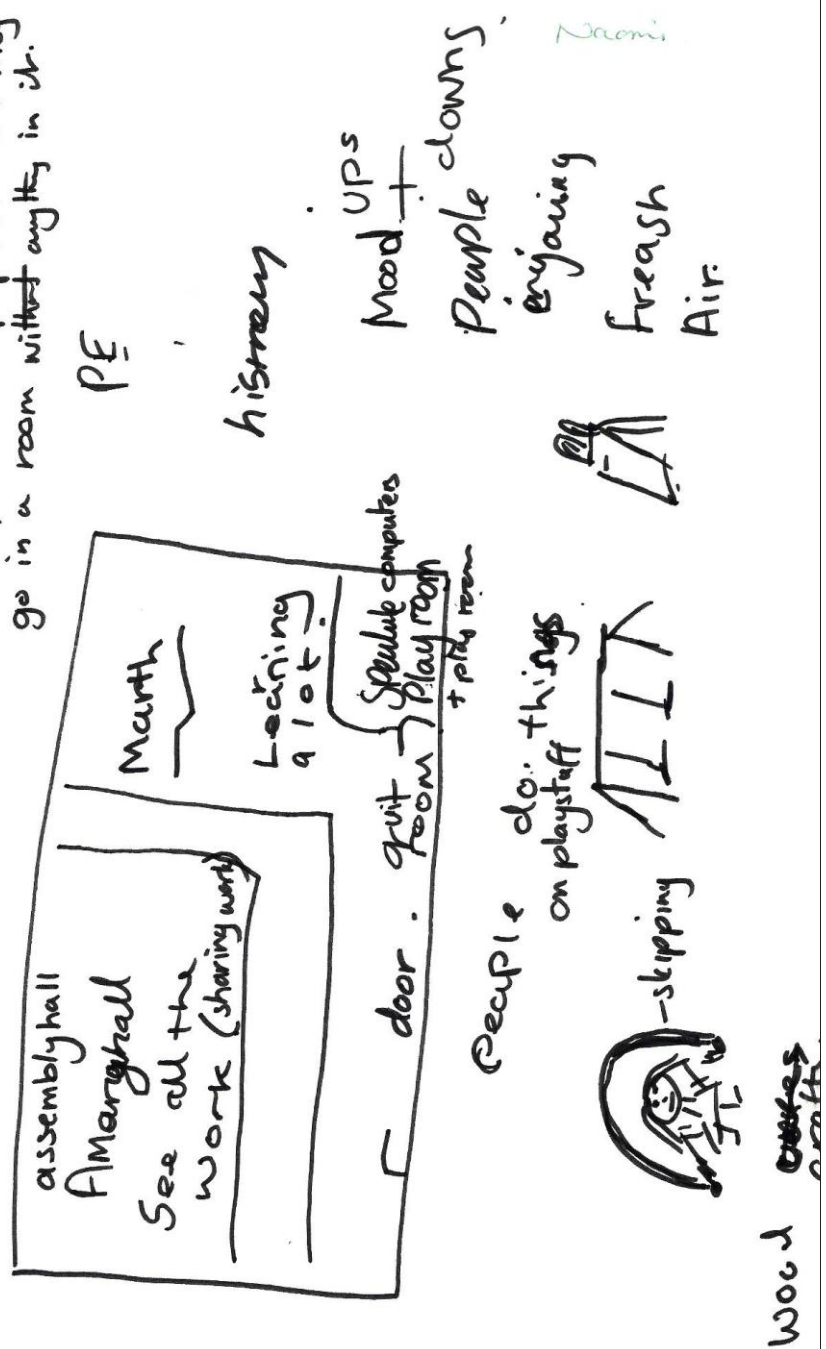 go in a room without anything in it.
Naomi
PE
hisroey
Mood UPS
+
People downs.
enjoying
Freash
Air.
assembly hall
AMarghall
See all the
Work (sharing work)
Marth
Learning
a lot
quit
room
computers
Play room
+ play room
door.
People do things
on playstuff
-skipping
Wood